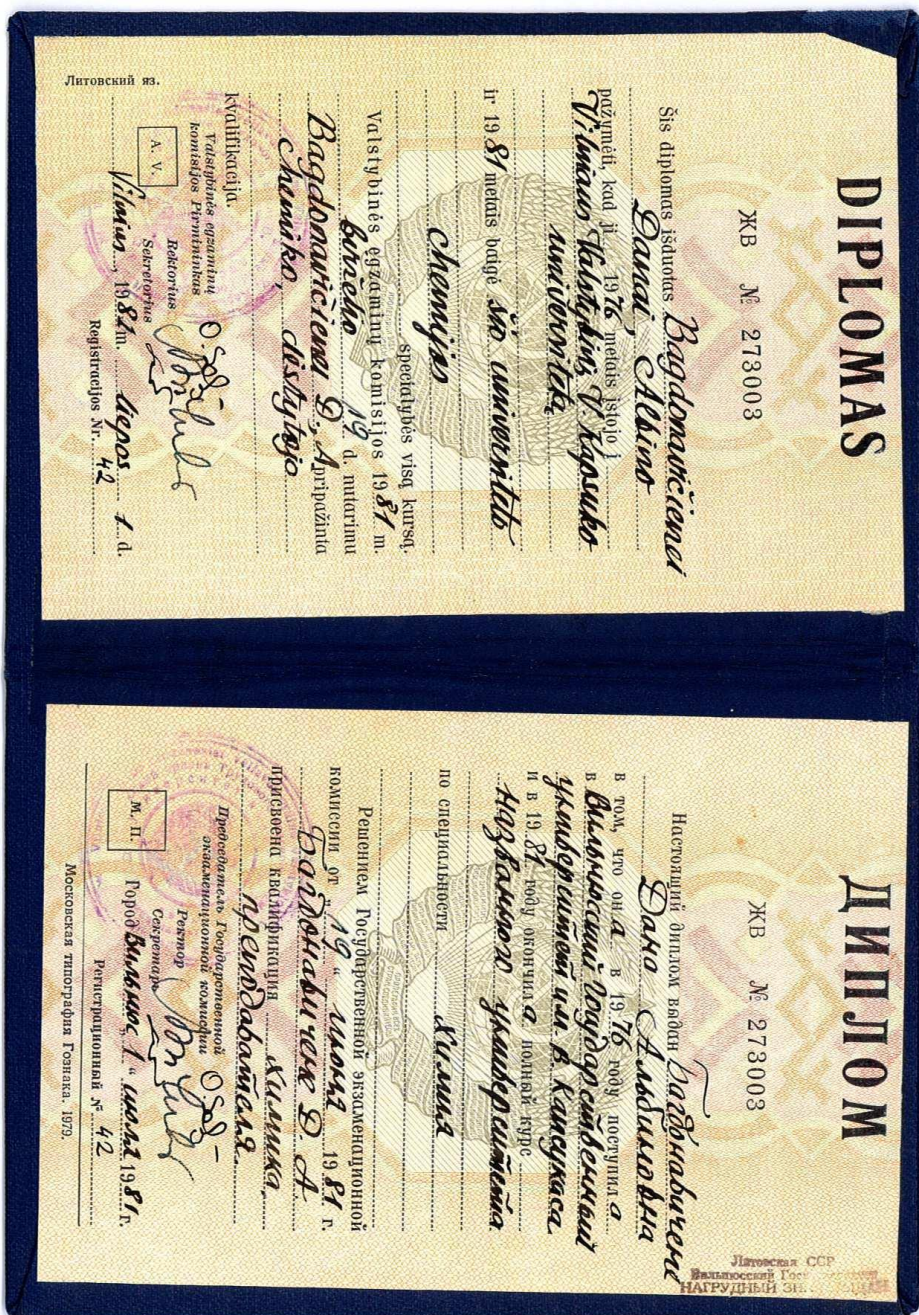 Литовский яз.
DIPLOMAS
ЖВ № 273003
Šis diplomas išduotas Bagdonavičienei
Danai, Albino
pažymėti, kad ji 1976 metais įstojo į
Vilniaus Valstybinį V. Kapsuko
universitetą
ir 1981 metais baigė šio universiteto
chemijos
specialybės visą kursą.
Valstybinės egzaminų komisijos 1981 m.
birželio 19 d. nutarimu
Bagdonavičienei D., A pripažinta
chemiko, dėstytojo
kvalifikacija
Valstybinės egzaminų
komisijos Pirmininkas
Rektorius
A. V.
Sekretorius
Vilnius, 1981 m. liepos 1 d.
Registracijos Nr. 42
ДИПЛОМ
ЖВ № 273003
Настоящий диплом выдан Багдонавичене
Дана Альбиновна
в том, что она в 1976 году поступила
в Вильнюсский Государственный
университет им. В. Капсукаса
и в 1981 году окончила полный курс
названного университета
по специальности Химия
Решением Государственной экзаменационной
комиссии от "19" июня 1981 г.
Багдонавичене Д. А.
присвоена квалификация Химика,
преподавателя
Председатель Государственной
экзаменационной комиссии
Ректор
М. П.
Секретарь
Город Вильнюс „1" июля 1981 г.
Регистрационный № 42
Московская типография Гознака. 1979.
Литовская ССР
Вильнюсский
НАГРУДНЫЙ